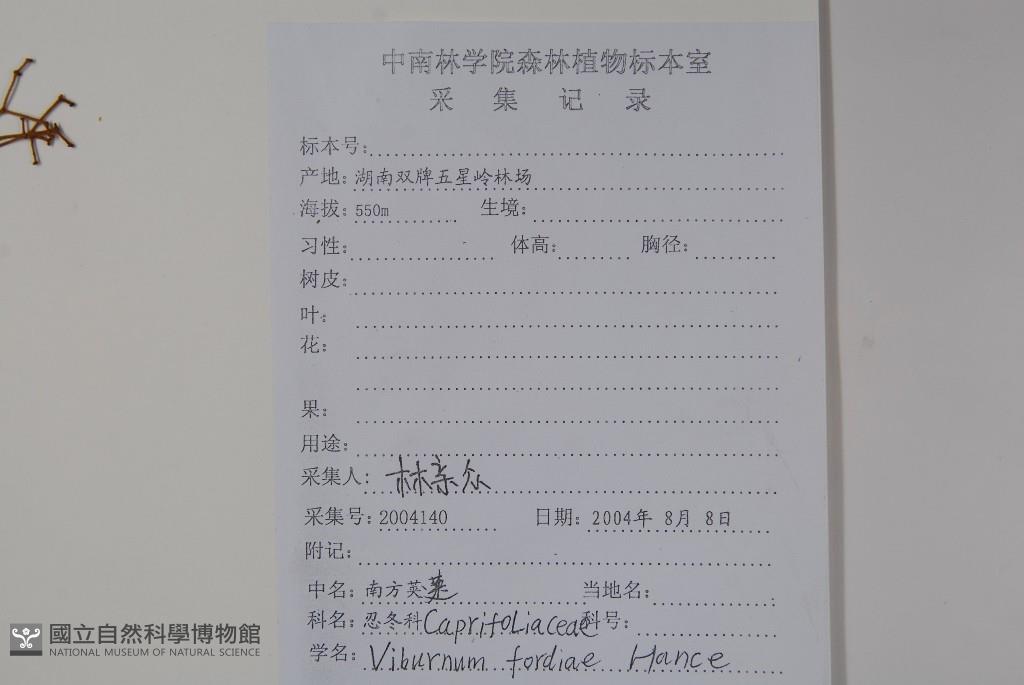 中南林学院森林植物标本室
采 集 记 录
标本号:
产地: 湖南双牌五星岭林场
海拔: 550m 生境:
习性: 体高: 胸径:
树皮:
叶:
花:
果:
用途:
采集人: 林亲众
采集号: 2004140 日期: 2004年 8月 8日
附记:
中名: 南方荚蒾 当地名:
科名: 忍冬科 Caprifoliaceae 科号:
学名: Viburnum fordiae Hance
國立自然科學博物館
NATIONAL MUSEUM OF NATURAL SCIENCE